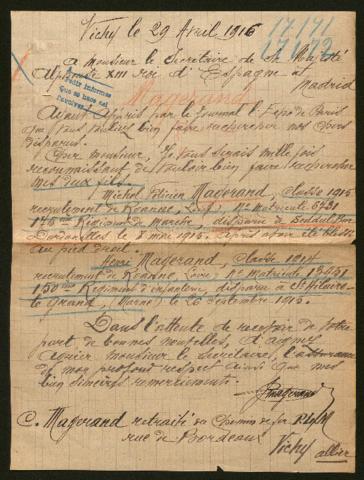 Vichy le 29 Avril 1916
17171
17172
A monsieur le Secrétaire de S. Majesté
Alphonse XIII roi d'Espagne at
Madrid
Pedir informes
Que se hace así
Magerand
Ayant appris par le journal l'Expo de Paris
que vous vouliez bien faire rechercher nos chers
disparus.
monsieur, Je vous serais mille fois
reconnaissant de vouloir bien faire rechercher
mes deux fils
Michel Magerand, Classe 1915
recrutement de Roanne, Loire, No Matricule
Régiment de Marche, disparu à Seddul Bar
Dardanelles le mai 1915. après avoir été blessé
au pied droit.
Henri Magerand, Classe 1914
recrutement de Roanne, Loire, No Matricule
130ème Régiment d'infanterie, disparu à St Hilaire
le Grand, (Marne) le 26 Septembre 1915.
Dans l'attente de recevoir de votre
part de bonnes nouvelles, d'agréer
monsieur le Secrétaire, l'assurance
de mon profond respect ainsi que mes
bien sincères remerciements.
Magerand
C. Magerand retraité du Chemin de fer P.L.M
rue de Bordeaux
Vichy allier